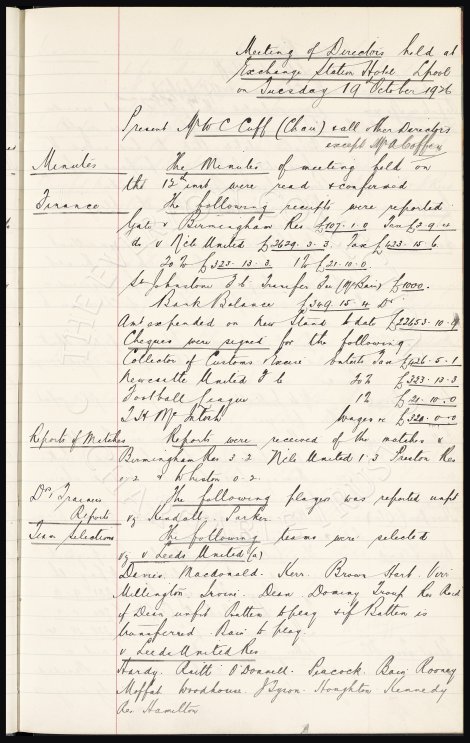 Meeting of Directors held at
Exchange Station Hotel Lpool
on Tuesday 19 October 1926
Present Mr W C Cuff (Chair) & all other Directors
except Mr A Coffey
Minutes The Minutes of meeting held on
the 12th inst were read & confirmed
Finance The following receipts were reported
Gate v Birmingham Res £107.1.0 Tax £2.9.4
do v N'Cle United £2629.3.3 Tax £423.15.6
20% £323.13.3 1% £21.10.0
St Johnstone F C Transfer Fee (McBain) £1000.
Bank Balance £349.15.4 Dr
Amt expended on New Stand to date £22653.10.9
Cheques were signed for the following
Collector of Customs & Excise Entertt Tax £426.5.1
Newcastle United F C 20% £323.13.3
Football League 1% £21.10.0
T.H. McIntosh Wages &c £320.0.0
Reports of Matches Reports were received of the matches v
Birmingham Res 3.2 N'Cle United 1.3 Preston Res
2 & Whiston 0.2.
Drs & Trainers The following players was reported unfit
Reports vz Kendall, Parker.
Team Selections The following teams were selected
vz v Leeds United (a)
Davies. Macdonald. Kerr. Brown Hart. Virr
Millington Irvine. Dean. Dominy Troup Res Reid
if Dean unfit Batten to play & if Batten is
transferred Bain to play.
v Leeds United Res
Hardy. Raitt O'Donnell. Peacock. Bain Rooney
Moffat Woodhouse. J Byrom. Houghton Kennedy
Res Hamilton